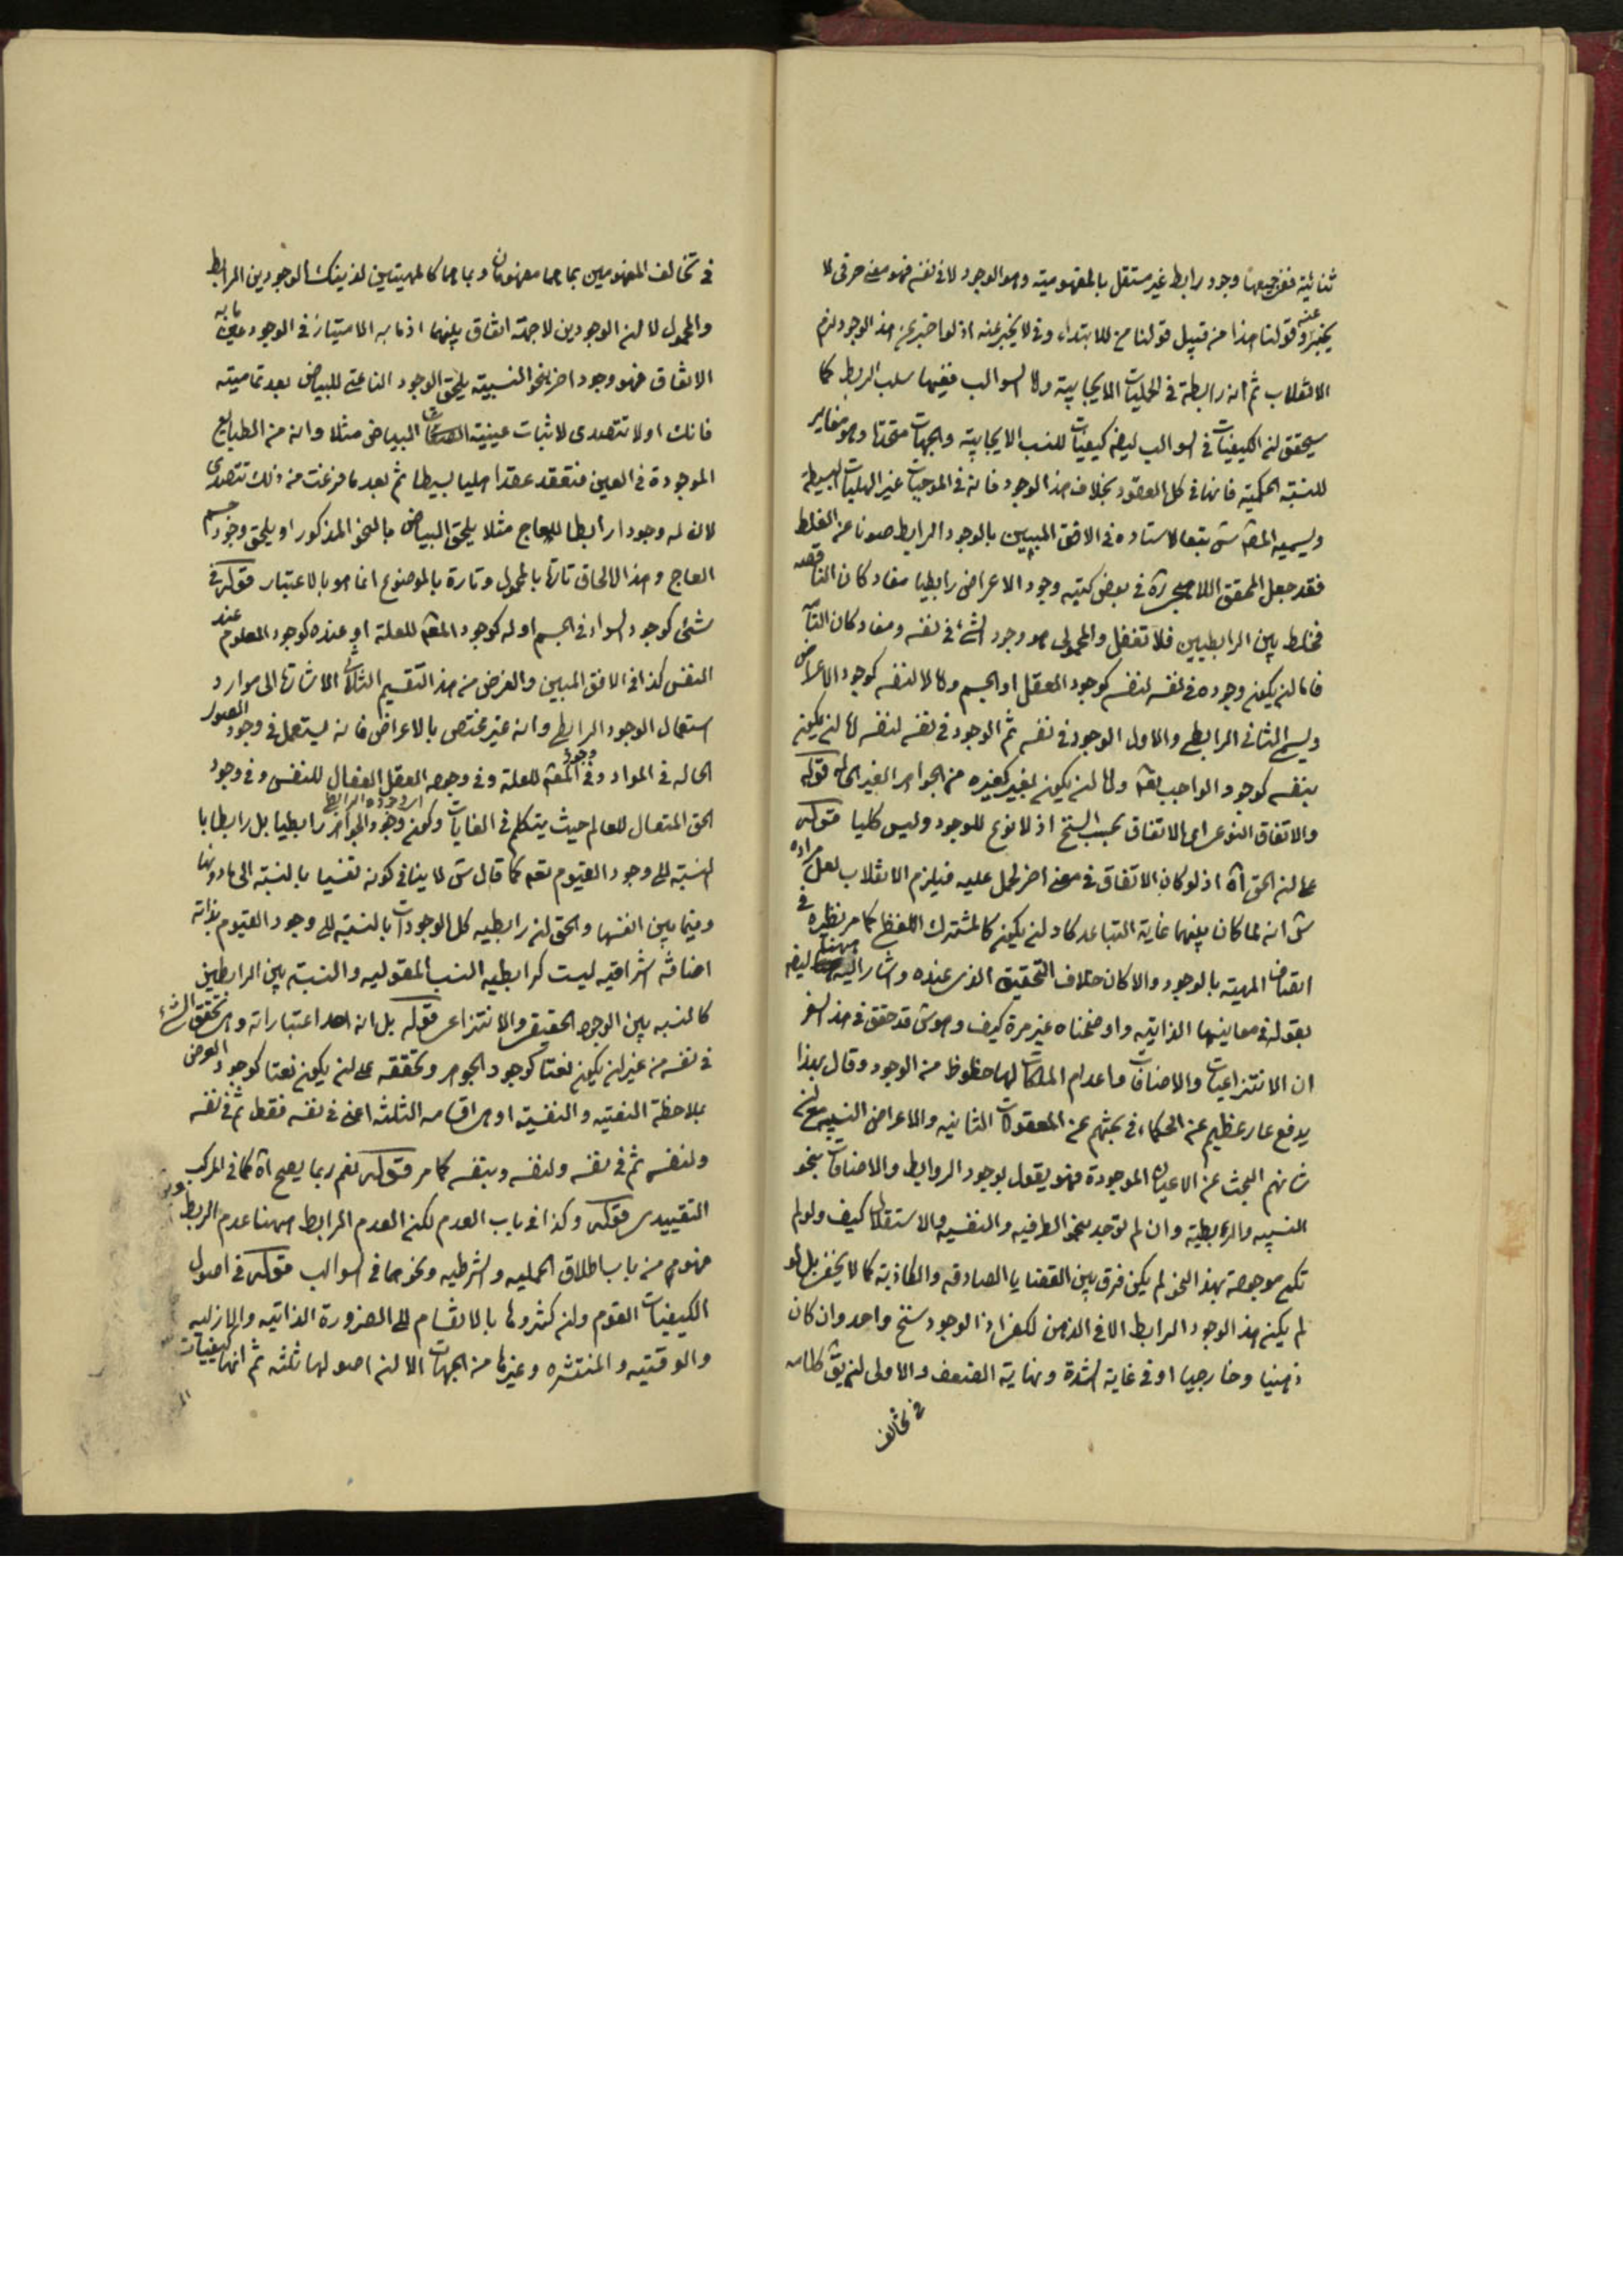 ثنائية ففى جميعها وجود رابط غير مستقل بالمفهومية وهو الوجود لا فى نفسه فهو معنى حرفى لا
يخبر عنه وقولنا هذا من قبيل قولنا من للابتداء وفى لا يخبر عنه اذ لو اخبر عن هذا الوجود لزم
الانقلاب ثم انه رابطة فى الحمليات الايجابية ولا السوالب ففيها سلب الربط كما
سيحقق ان الكيفيات فى السوالب ايضا كيفيات للنسب الايجابية والجهات متحدة وهو مغاير
للنسبة الحكمية فانها فى كل العقود بخلاف هذا الوجود فانه فى الموجبات غير الهليات البسيطة
ويسميه المصه س تبعا لاستاده فى الافق المبين بالوجود الرابط صونا عن الغلط
فقد جعل المحقق اللاهيجى ره فى بعض كتبه وجود الاعراض رابطيا مفاد كان الناقصه
فخلط بين الرابطيين فلا تغفل والمحمولى هو وجود الشئ فى نفسه ومفاد كان التامه
فاما ان يكون وجوده فى نفسه لنفسه كوجود العقل او الجسم واما لا لنفسه كوجود الاعراض
ويسمى الثانى الرابطى والاول الوجود فى نفسه ثم الوجود فى نفسه لنفسه اما ان يكون
بنفسه كوجود الواجب تعه واما ان يكون بغيره كغيره من الجواهر الغير الحاله قوله
والاتفاق النوعى اى الاتفاق بحسب السنخ اذ لا نوع للوجود وليس كليا قوله
على ان الحق آه اذ لو كان الاتفاق فى معنى اخر لحمل عليه فيلزم الانقلاب لعل مراده
س انه لما كان بينهما غاية التباعد كاد ان يكون كالمشترك اللفظى كما مر نظيره فى
اتصاف المهية بالوجود والا كان خلاف التحقيق الذى عنده واشار اليه هيهنا ايضا
بقوله فى معانيها الذاتيه واوضحناه غير مرة كيف وهو س قد حقق فى هذا السفر
ان الانتزاعيات والاضافات واعدام الملكات لها حظوظ من الوجود وقال بهذا
يدفع عار عظيم عن الحكماء فى بحثهم عن المعقولات الثانيه والاعراض النسبيه مع ان
شانهم البحث عن الاعيان الموجودة فهو يقول بوجود الروابط والاضافات بنحو
النسبيه والرابطية وان لم توجد بنحو الطرفيه والنفسيه والاستقلال كيف ولو لم
تكن موجودة بهذا النحو لم يكن فرق بين القضايا الصادقه والكاذبة كما لا يخفى بل لو
لم يكن هذا الوجود الرابط الا فى الذهن لكفى اذ الوجود سنخ واحد وان كان
ذهنيا وخارجيا او فى غاية الشدة ونهاية الضعف والاولى ان يق كلامه
فى تخالف
فى تخالف المفهومين بما هما مفهومان وبما هما كالمهيتين لذينك الوجودين الرابط
والمحمول لا ان الوجودين لا جهة اتفاق بينهما اذ ما به الامتياز فى الوجود عين ما به
الاتفاق فهو وجود اخر بنحو النسبية يلحق الوجود الناعتى للبياض بعد تماميته
فانك اولا تتصدى لاثبات عينية البياض مثلا وانه من الطبايع
الموجودة فى العين فتعقد عقدا هليا بسيطا ثم بعد ما فرغت من ذلك تتصدى
لان له وجودا رابطا للعاج مثلا يلحق البياض بالنحو المذكور او يلحق وجود جسم
العاج وهذا الالحاق تارة بالمحمول وتارة بالموضوع انما هو بالاعتبار قوله فى
شئ كوجود السواد فى الجسم او له كوجود المعه للعلة او عنده كوجود المعلوم عند
النفس كذا فى الافق المبين والغرض من هذا التقسيم الثلاثى الاشارة الى موارد
استعمال الوجود الرابطى وانه غير مختص بالاعراض فانه يستعمل فى وجود الصور
الحاله فى المواد وفى وجود المعه للعلة وفى وجود العقل الفعال للنفس وفى وجود
الحق المتعال للعالم حيث يتكلم فى الغايات وكون وجود الجواهر رابطيا بل رابطا با
لنسبة الى وجود القيوم تعه كما قال س لا ينافى كونه نفسيا بالنسبة الى مادونها
وفيما بين انفسها والحق ان رابطيه كل الوجودات بالنسبة الى وجود القيوم بذاته
اضافة اشراقيه ليست كرابطيه النسب المقوليه والنسبة بين الرابطين
كالنسبه بين الوجود الحقيقى والانتزاعى قوله بل انه احد اعتباراته وهى تحقق الشئ
فى نفسه من غير ان يكون نعتا كوجود الجوهر وتحققه على ان يكون نعتا كوجود العرض
بملاحظة النعتيه والنفسية او هى اقسامه الثلثه اعنى فى نفسه فقط ثم فى نفسه
ولنفسه ثم فى نفسه ولنفسه وبنفسه كما مر قوله نعم ربما يصح آه كما فى المركب
التقييدى قوله وكذا فى باب العدم لكن العدم الرابط هيهنا عدم الربط
فهو من باب اطلاق الحمليه والشرطيه ونحوهما فى السوالب قوله فى اصول
الكيفيات القوم وان كثروها بالانقسام الى الضرورة الذاتيه والازليه
والوقتيه والمنتشره وغيرها من الجهات الا ان اصولها ثلثه ثم انها كيفيات